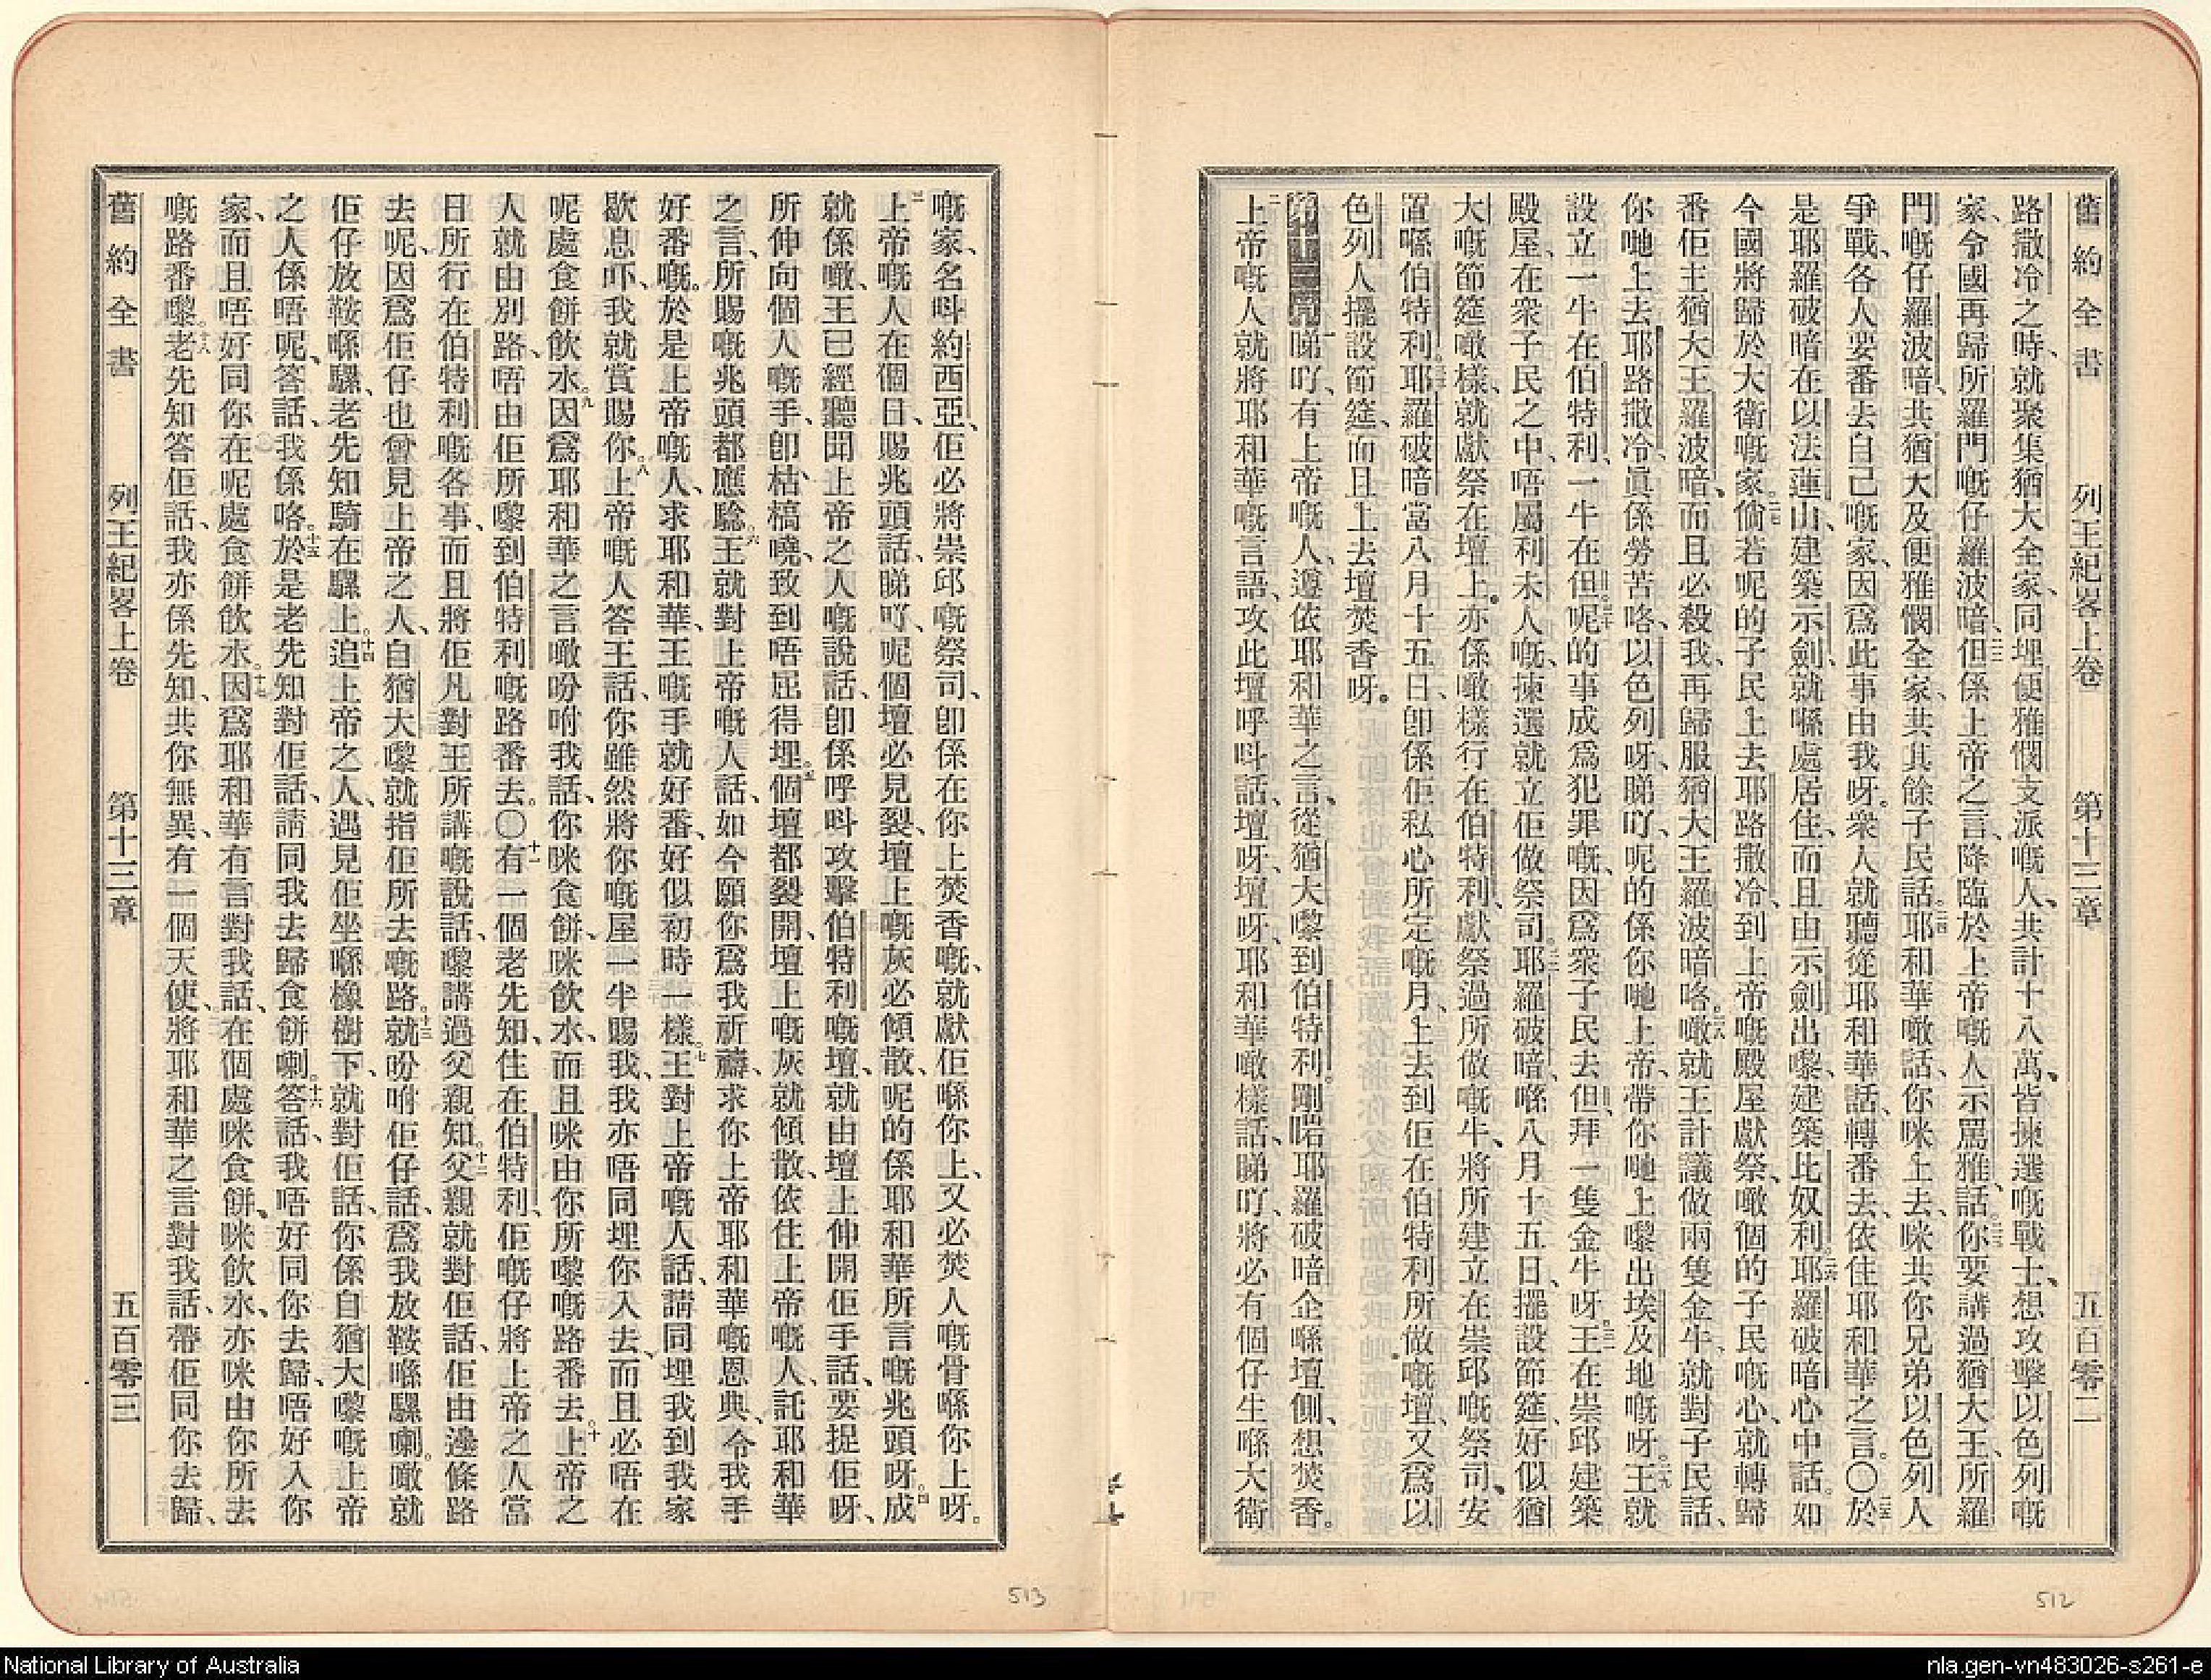 舊約全書　列王紀畧上卷　第十三章　五百零二
路撒冷之時、就聚集猶大全家、同埋便雅憫支派嘅人、共計十八萬、皆揀選嘅戰士、想攻擊以色列嘅
家、令國再歸所羅門嘅仔羅波暗、二二但係上帝之言、降臨於上帝嘅人示罵雅、話、二三你要講過猶大王、所羅
門嘅仔羅波暗、共猶大及便雅憫全家、共其餘子民話、二四耶和華噉話、你咪上去、咪共你兄弟以色列人
爭戰、各人要番去自己嘅家、因爲此事由我呀。衆人就聽從耶和華話、轉番去、依住耶和華之言。〇二五於
是耶羅破暗在以法蓮山、建築示劍、就喺處居住、而且由示劍出嚟、建築比奴利。二六耶羅破暗心中話。如
今國將歸於大衛嘅家。二七倘若呢的子民上去耶路撒冷、到上帝嘅殿屋獻祭、噉個的子民嘅心、就轉歸
番佢主猶大王羅波暗、而且必殺我、再歸服猶大王羅波暗咯。二八噉就王計議做兩隻金牛、就對子民話、
你哋上去耶路撒冷、眞係勞苦咯、以色列呀、睇吖、呢的係你哋上帝、帶你哋上嚟出埃及地嘅呀。二九王就
設立一牛在伯特利、一牛在但。三十呢的事成爲犯罪嘅、因爲衆子民去但、拜一隻金牛呀。三一王在崇邱建築
殿屋、在衆子民之中、唔屬利未人嘅、揀選就立佢做祭司。三二耶羅破暗、喺八月十五日、擺設節筵、好似猶
大嘅節筵噉樣、就獻祭在壇上。亦係噉樣行在伯特利、獻祭過所做嘅牛、將所建立在崇邱嘅祭司、安
置喺伯特利。三三耶羅破暗當八月十五日、卽係佢私心所定嘅月、上去到佢在伯特利所做嘅壇、又爲以
色列人擺設節筵、而且上去壇焚香呀。
第十三章 一睇吖、有上帝嘅人、遵依耶和華之言、從猶大嚟到伯特利。剛喏耶羅破暗企喺壇側、想焚香。
二上帝嘅人就將耶和華嘅言語、攻此壇呼呌話、壇呀、壇呀、耶和華噉樣話、睇吖、將必有個仔生喺大衛
嘅家、名呌約西亞、佢必將崇邱嘅祭司、卽係在你上焚香嘅、就獻佢喺你上、又必焚人嘅骨喺你上呀。
三上帝嘅人在個日、賜兆頭話、睇吖、呢個壇必見裂、壇上嘅灰必傾散、呢的係耶和華所言嘅兆頭呀。四成
就係噉、王已經聽聞上帝之人嘅說話、卽係呼呌攻擊伯特利嘅壇、就由壇上伸開佢手話、要捉佢呀、
所伸向個人嘅手、卽枯槁嘵、致到唔屈得埋。五個壇都裂開、壇上嘅灰就傾散、依住上帝嘅人、託耶和華
之言、所賜嘅兆頭都應騐。六王就對上帝嘅人話、如今願你爲我祈禱、求你上帝耶和華嘅恩典、令我手
好番嘅。於是上帝嘅人、求耶和華、王嘅手就好番、好似初時一樣。七王對上帝嘅人話、請同埋我到我家
歇息吓、我就賞賜你。八上帝嘅人答王話、你雖然將你嘅屋一半賜我、我亦唔同埋你入去、而且必唔在
呢處食餅飲水。九因爲耶和華之言噉吩咐我話、你咪食餅、咪飲水、而且咪由你所嚟嘅路番去。十上帝之
人就由別路、唔由佢所嚟到伯特利嘅路番去。〇十一有一個老先知、住在伯特利、佢嘅仔將上帝之人當
日所行在伯特利嘅各事、而且將佢凡對王所講嘅說話、嚟講過父親知。十二父親就對佢話、佢由邊條路
去呢、因爲佢仔也曾見上帝之人、自猶大嚟就指佢所去嘅路。十三就吩咐佢仔話、爲我放鞍喺騾喇。噉就
佢仔放鞍喺騾、老先知騎在騾上。十四追上帝之人、遇見佢坐喺橡樹下、就對佢話、你係自猶大嚟嘅上帝
之人係唔呢、答話、我係咯。十五於是老先知對佢話、請同我去歸食餅喇。十六答話、我唔好同你去歸、唔好入你
家、而且唔好同你在呢處食餅飲水。十七因爲耶和華有言對我話、在個處咪食餅、咪飲水、亦咪由你所去
嘅路番嚟。十八老先知答佢話、我亦係先知、共你無異、有一個天使、將耶和華之言對我話、帶佢同你去歸、
舊約全書　列王紀畧上卷　第十三章　五百零三
513
512
National Library of Australia
nla.gen-vn483026-s261-e